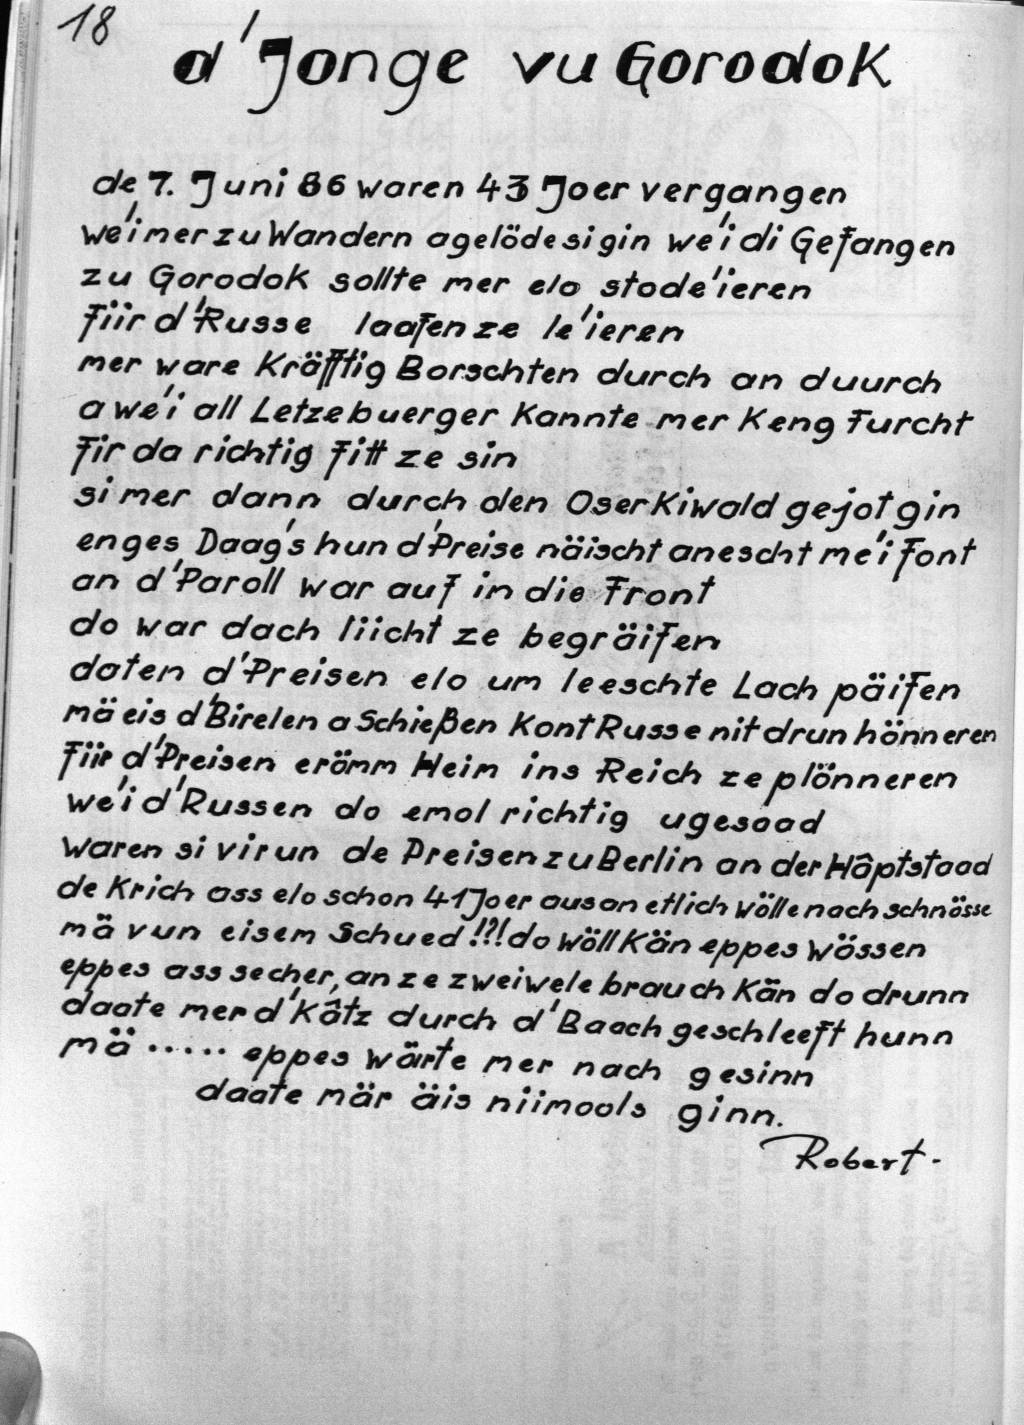 18
d'Jonge vu Gorodok
de 7. Juni 86 waren 43 Joer vergangen
we'imer zu Wandern agelöde sigin we'i di Gefangen
zu Gorodok sollte mer elo stode'ieren
fiir d'Russe laafen ze le'ieren
mer ware Kräfftig Borschten durch an duurch
a we'i all Letzebuerger Kannte mer Keng Furcht
fir da richtig fitt ze sin
si mer dann durch den Oserkiwald gejot gin
enges Daag's hun d'Preise näischt anescht me'i font
an d'Paroll war auf in die Front
do war dach liicht ze begräifen
daten d'Preisen elo um leeschte Lach päifen
mä eis d'Birelen a Schießen Kont Russe nit drun hönneren
fiir d'Preisen erömm Heim ins Reich ze plönneren
we'i d'Russen do emol richtig ugesaad
waren si virun de Preisen zu Berlin an der Hâptstaad
de Krich ass elo schon 41 Joer aus an etlich wölle nach schnösse
mä vun eisem Schued !?! do wöll Kän eppes wössen
eppes ass secher, an ze zweiwele brauch Kän do drunn
daate mer d'Kâtz durch d'Baach geschleeft hunn
mä ..... eppes wärte mer nach gesinn
daate mär äis niimools ginn.
Robert -